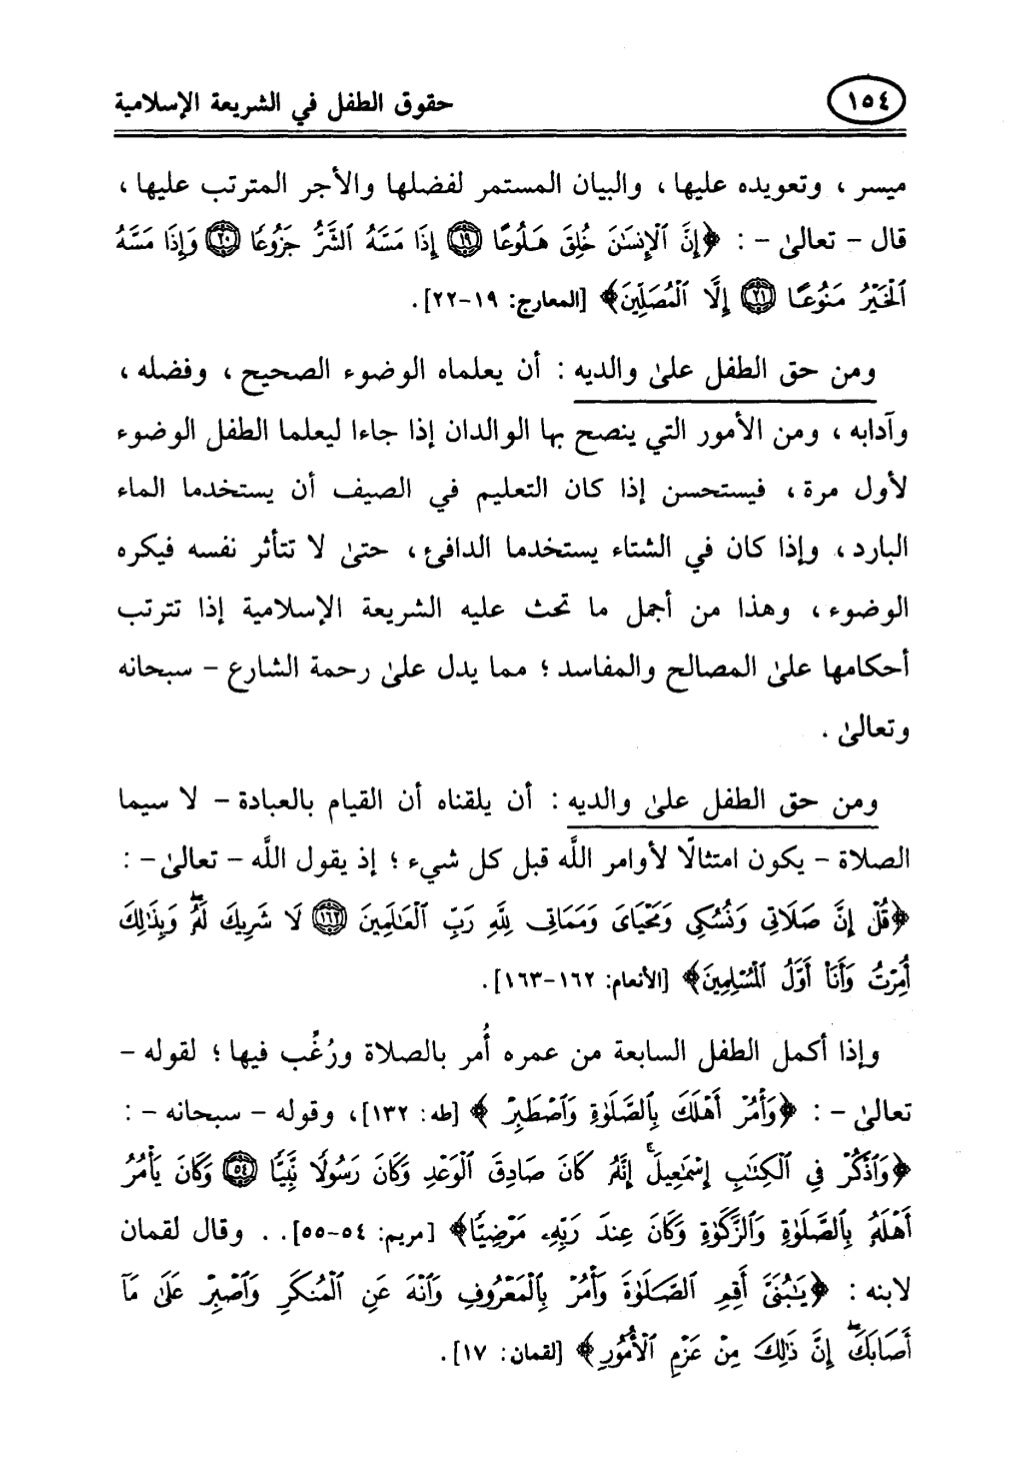 ١٥٤ حقوق الطفل في الشريعة الإسلامية
ميسر ، وتعويده عليها ، والبيان المستمر لفضلها والأجر المترتب عليها ،
قال - تعالىٰ - : ﴿إِنَّ ٱلْإِنسَٰنَ خُلِقَ هَلُوعًا ۝١٩ إِذَا مَسَّهُ ٱلشَّرُّ جَزُوعًا ۝٢٠ وَإِذَا مَسَّهُ
ٱلْخَيْرُ مَنُوعًا ۝٢١ إِلَّا ٱلْمُصَلِّينَ﴾ [المعارج: ١٩-٢٢].
ومن حق الطفل علىٰ والديه : أن يعلماه الوضوء الصحيح ، وفضله ،
وآدابه ، ومن الأمور التي ينصح بها الوالدان إذا جاءا ليعلما الطفل الوضوء
لأول مرة ، فيستحسن إذا كان التعليم في الصيف أن يستخدما الماء
البارد ، وإذا كان في الشتاء يستخدما الدافئ ، حتىٰ لا تتأثر نفسه فيكره
الوضوء ، وهذا من أجمل ما تحث عليه الشريعة الإسلامية إذا تترتب
أحكامها علىٰ المصالح والمفاسد ؛ مما يدل علىٰ رحمة الشارع - سبحانه
وتعالىٰ .
ومن حق الطفل علىٰ والديه : أن يلقناه أن القيام بالعبادة - لا سيما
الصلاة - يكون امتثالًا لأوامر اللَّه قبل كل شيء ؛ إذ يقول اللَّه - تعالىٰ - :
﴿قُلْ إِنَّ صَلَاتِى وَنُسُكِى وَمَحْيَاىَ وَمَمَاتِى لِلَّهِ رَبِّ ٱلْعَٰلَمِينَ ۝١٦٢ لَا شَرِيكَ لَهُۥۖ وَبِذَٰلِكَ
أُمِرْتُ وَأَنَا۠ أَوَّلُ ٱلْمُسْلِمِينَ﴾ [الأنعام: ١٦٢-١٦٣].
وإذا أكمل الطفل السابعة من عمره أُمر بالصلاة ورُغِّب فيها ؛ لقوله -
تعالىٰ - : ﴿وَأْمُرْ أَهْلَكَ بِٱلصَّلَوٰةِ وَٱصْطَبِرْ ﴾ [طه: ١٣٢] ، وقوله - سبحانه - :
﴿وَٱذْكُرْ فِى ٱلْكِتَٰبِ إِسْمَٰعِيلَۚ إِنَّهُۥ كَانَ صَادِقَ ٱلْوَعْدِ وَكَانَ رَسُولًا نَّبِيًّا ۝٥٤ وَكَانَ يَأْمُرُ
أَهْلَهُۥ بِٱلصَّلَوٰةِ وَٱلزَّكَوٰةِ وَكَانَ عِندَ رَبِّهِۦ مَرْضِيًّا﴾ [مريم: ٥٤-٥٥]. . وقال لقمان
لابنه : ﴿يَٰبُنَىَّ أَقِمِ ٱلصَّلَوٰةَ وَأْمُرْ بِٱلْمَعْرُوفِ وَٱنْهَ عَنِ ٱلْمُنكَرِ وَٱصْبِرْ عَلَىٰ مَآ
أَصَابَكَۖ إِنَّ ذَٰلِكَ مِنْ عَزْمِ ٱلْأُمُورِ﴾ [لقمان: ١٧].